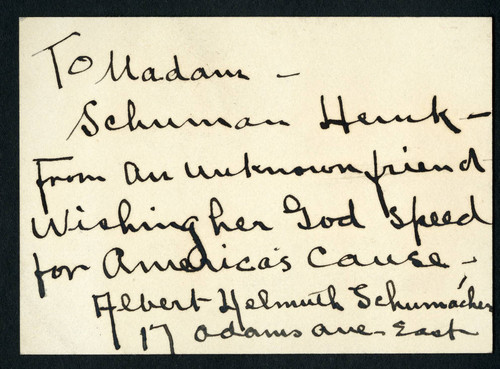 To Madam -
Schuman Heink -
From an unknown friend
Wishing her God Speed
for America's cause -
Albert Helmuth Schumacher
17 Adams Ave - East